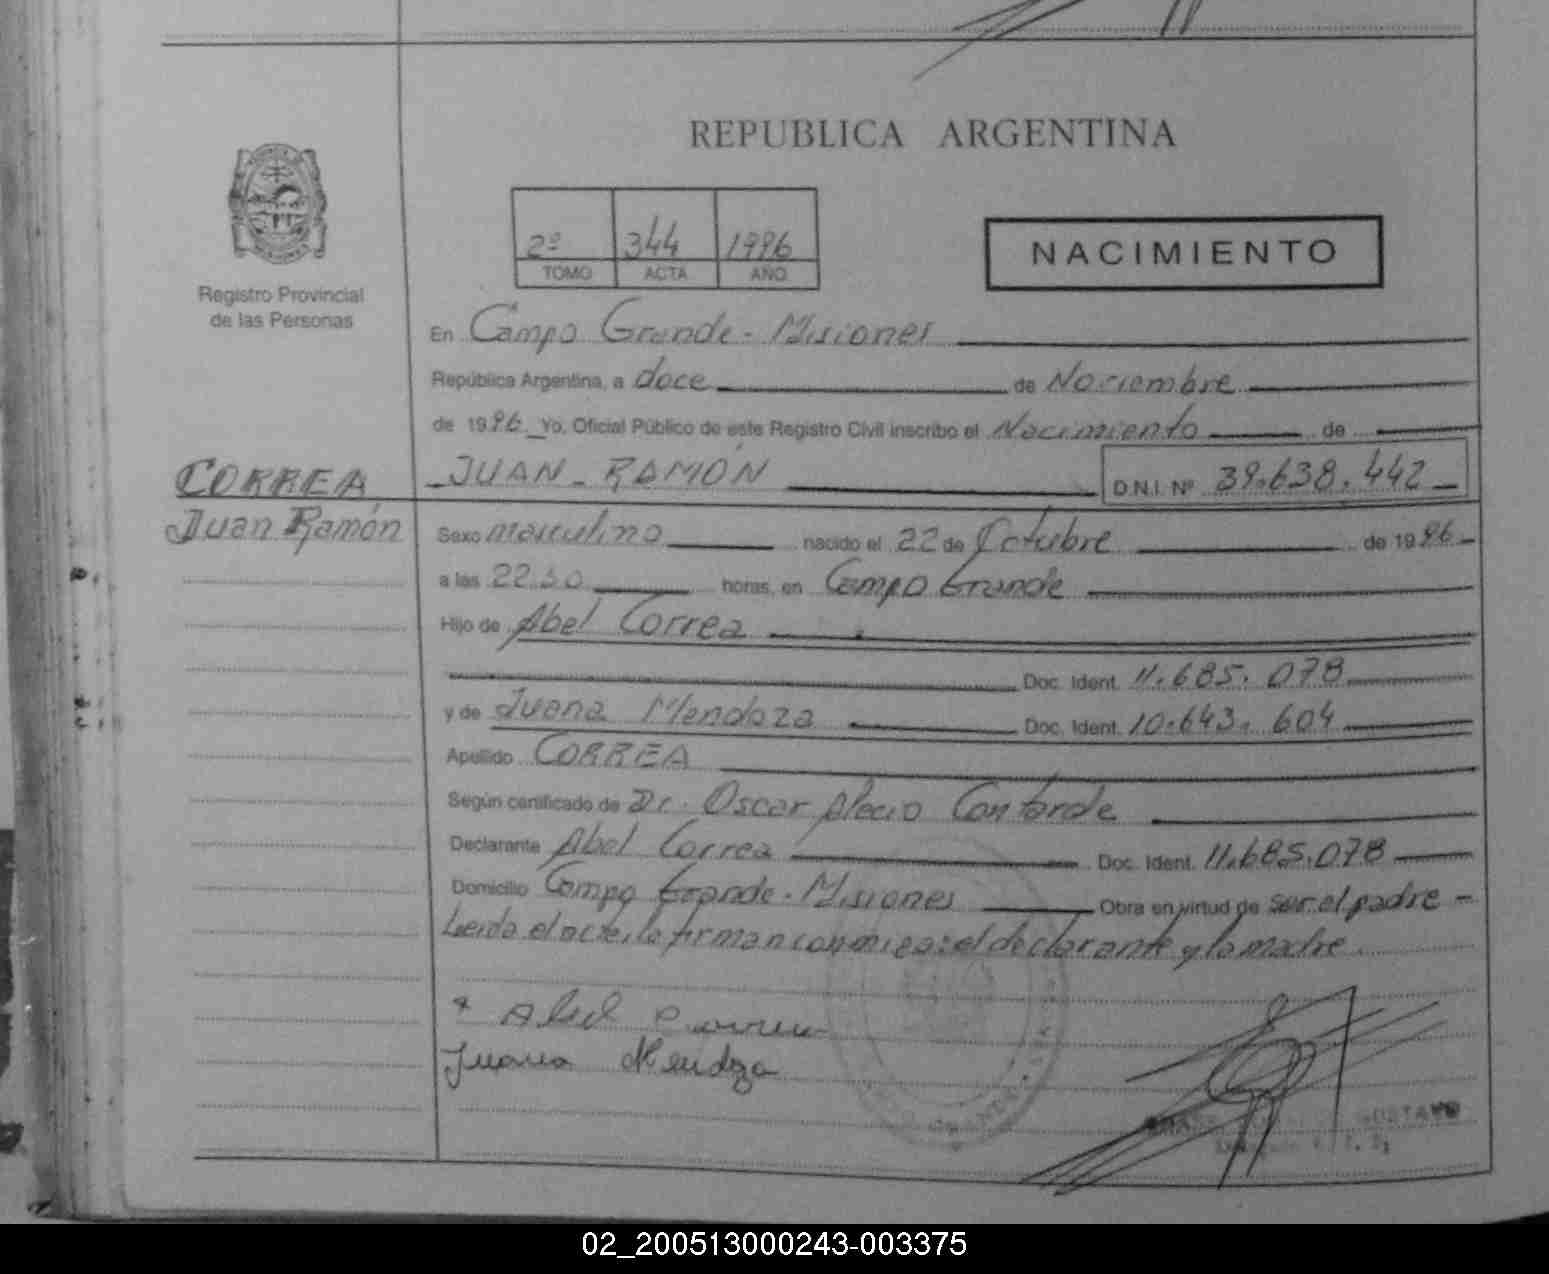 REPUBLICA ARGENTINA
2º 344 1996
TOMO ACTA AÑO
NACIMIENTO
Registro Provincial
de las Personas
En Campo Grande - Misiones
República Argentina, a doce de Noviembre
de 1996 Yo, Oficial Público de este Registro Civil inscribo el Nacimiento de
JUAN - RAMÓN D.N.I. Nº 39.638.442
CORREA
Juan Ramón
Sexo masculino nacido el 22 de Octubre de 1996
a las 22.30 horas, en Campo Grande
Hijo de Abel Correa
Doc. Ident. 11.685.078
y de Juana Mendoza Doc. Ident. 10.643.604
Apellido CORREA
Según certificado de Dr. Oscar Alecio
Declarante Abel Correa Doc. Ident. 11.685.078
Domicilio Campo Grande - Misiones Obra en virtud de ser el padre -
Leida el acta, la firman conmigo: el declarante y la madre.
Abel Correa
Juana Mendoza
GUSTAVO
02_200513000243-003375